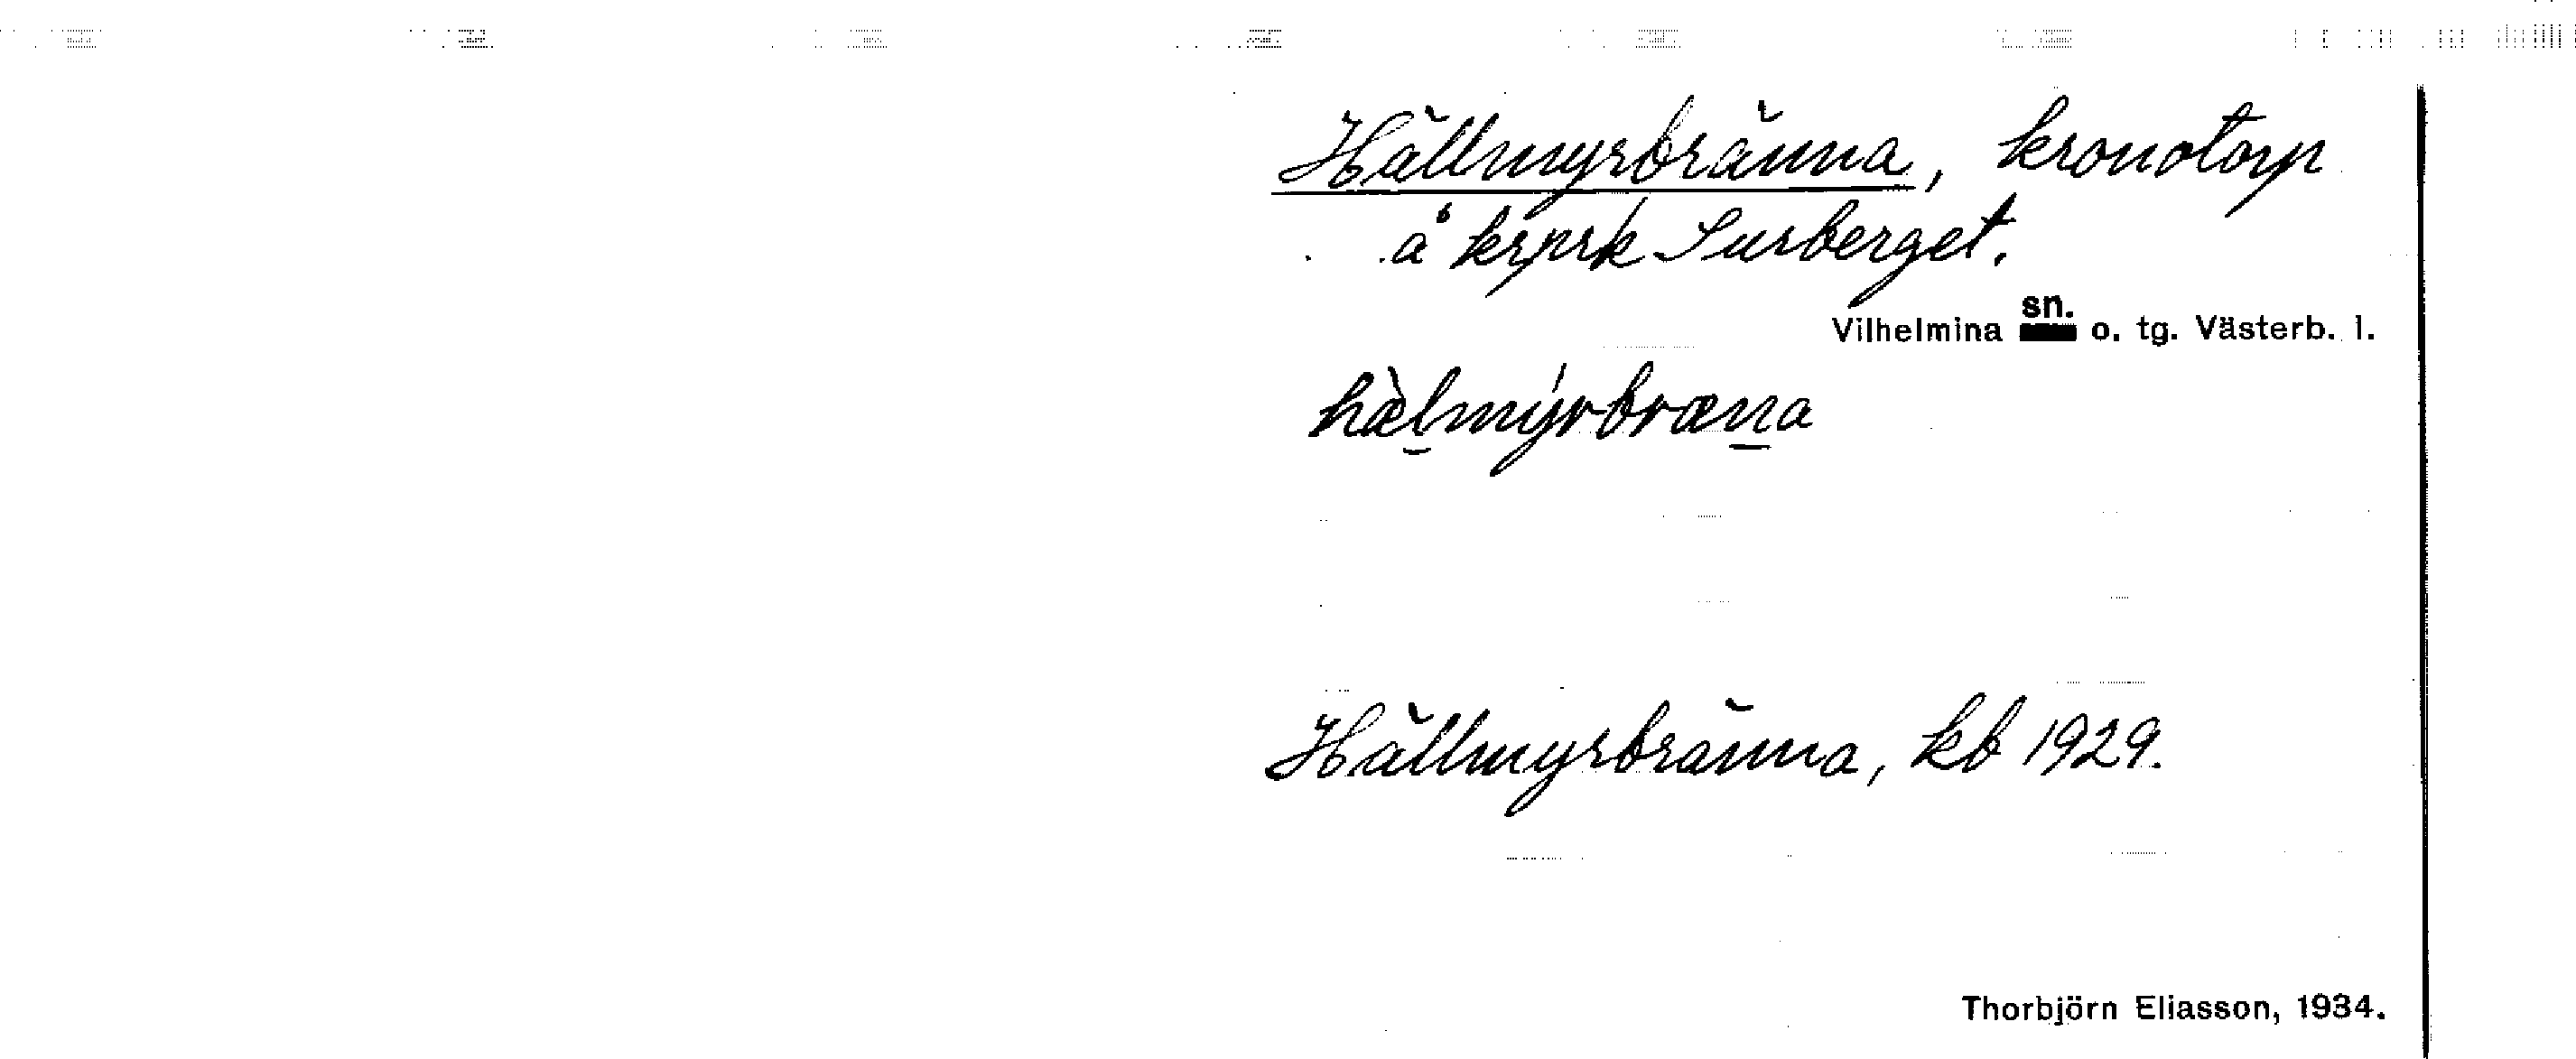 Hällmyrbränna, kronotorp
å krprk Surberget.
Vilhelmina sn. o. tg. Västerb. l.
hæ̀lmýrbræna
Hällmyrbränna, kb 1929.
Thorbjörn Eliasson, 1934.